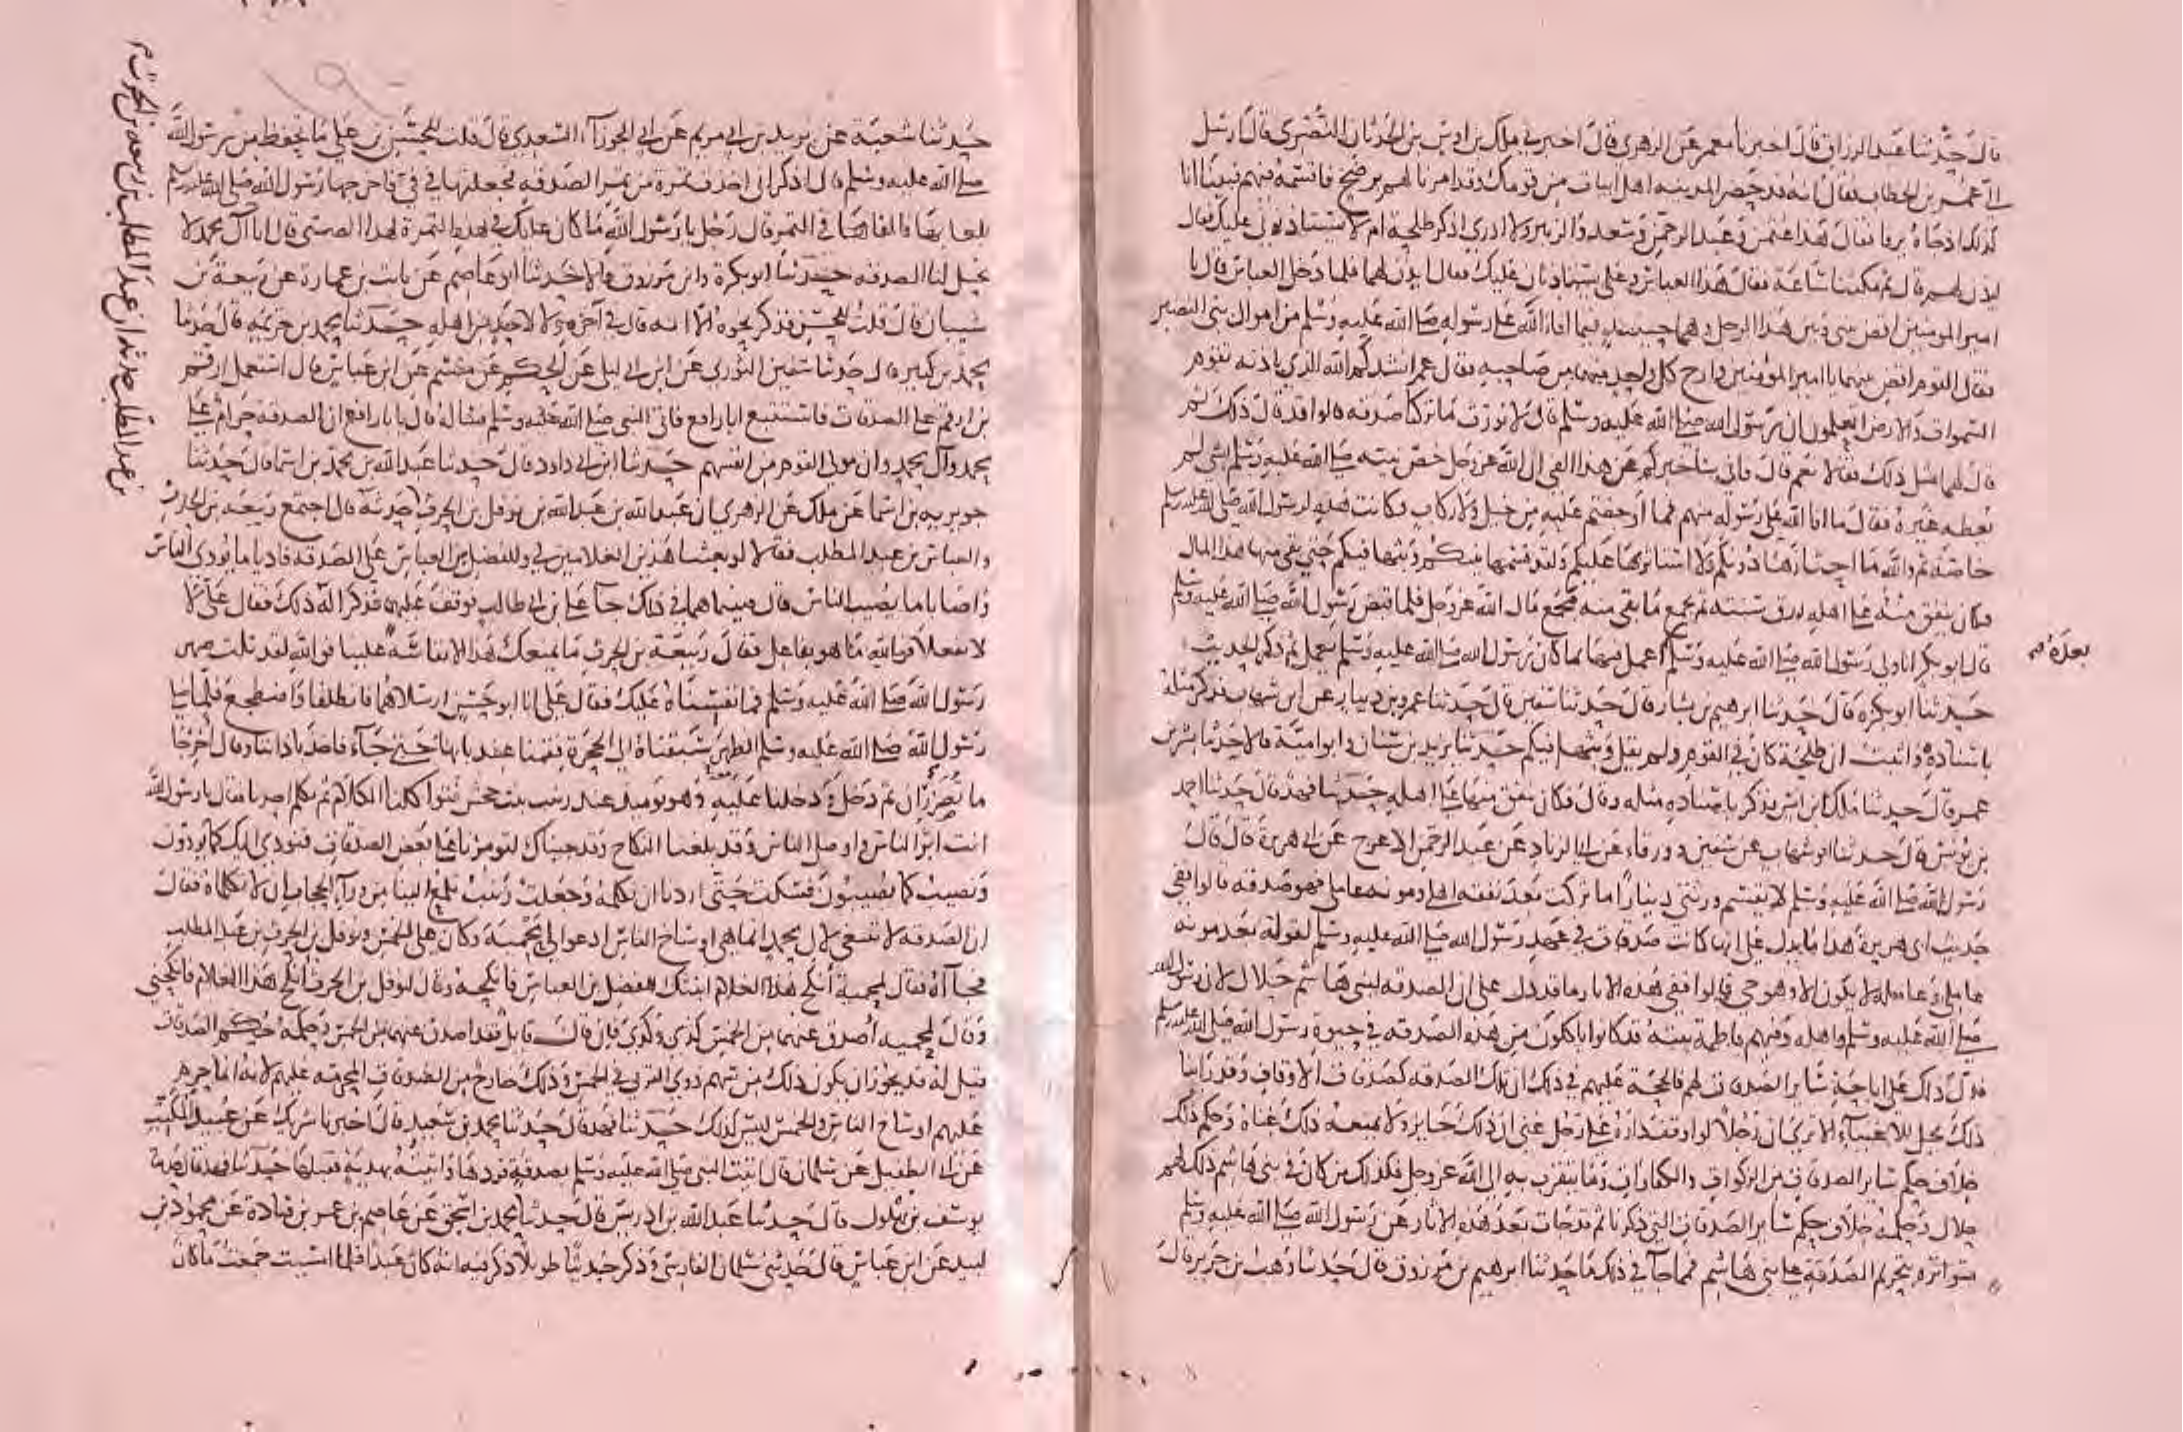 قال حدثنا عبد الرزاق قال اخبرنا معمر عن الزهري قال اخبرني ملك بن اوس بن الحدثان النصري قال ارسل
الي عمر بن الخطاب فقال انه قد حضر المدينه اهل ابيات من قومك وقد امرنا لهم برضخ فاقسمه فيهم فبينا انا
كذلك اذ جاه يرفا فقال هذا عثمن وعبد الرحمن وسعد والزبير ولا ادري اذكر طلحة ام لا يستاذنون عليك فقال
ايذن لهم قال ثم مكثنا ساعة فقال هذا العباس وعلي يستاذنان عليك فقال ايذن لهما فلما دخل العباس قال يا
امير المومنين اقض بيني وبين هذا الرجل وهما حينيذ فيما افا الله على رسوله صلى الله عليه وسلم من اموال بني النضير
فقال القوم اقض بينهما يا امير المؤمنين وارح كل واحد منهما من صاحبه فقال عمر انشدكم الله الذي باذنه تقوم
السموات والارض اتعلمون ان رسول الله صلى الله عليه وسلم قال لا نورث ما تركنا صدقه قالوا قد قال ذلك ثم
قال لهما مثل ذلك فقالا نعم قال فاني ساخبركم عن هذا الفي ان الله عز وجل خص نبيه صلى الله عليه وسلم بشي لم
يعطه غيره فقال ما افا الله على رسوله منهم فما اوجفتم عليه من خيل ولا ركاب فكانت هذه لرسول الله صلى الله عليه وسلم
خاصة ثم والله ما احتازها دونكم ولا استاثر بها عليكم ولقد قسمها بينكم وبثها فيكم حتى بقي منها هذا المال
فكان ينفق منه على اهله رزق سنته ثم يجمع ما بقي منه مجمع مال الله عز وجل فلما قبض رسول الله صلى الله عليه وسلم
قال ابو بكر انا ولي رسول الله صلى الله عليه وسلم اعمل فيها بما كان رسول الله صلى الله عليه وسلم يعمل ثم ذكر الحديث
بعده
حدثنا ابو بكره قال حدثنا ابرهيم بن بشار قال حدثنا سفين قال حدثنا عمرو بن دينار عن ابن شهاب فذكر مثله
باسناده واثبت ان طلحة كان في القوم ولم يقل وبثها فيكم حدثنا يزيد بن سنان وابو امية قالا حدثنا بشر بن
عمر قال حدثنا ملك بن انس فذكر باسناده مثله وقال فكان ينفق منها على اهله حدثنا فهد قال حدثنا احمد
بن يونس قال حدثنا ابو شهاب عن سفين وورقاء عن ابي الزناد عن عبد الرحمن الاعرج عن ابي هريرة قال قال
رسول الله صلى الله عليه وسلم لا يقتسم ورثتي دينارا ما تركت بعد نفقه اهلي ومونه عاملي فهو صدقه قالوا ففي
حديث ابي هريرة هذا ما يدل على انها كانت صدقات في عهد رسول الله صلى الله عليه وسلم لقوله بعد مونه
عاملي وعامله لا يكون الا وهو حي قالوا ففي هذه الاثار ما قد دل على ان الصدقه لبني هاشم حلال لان رسول الله
صلى الله عليه وسلم واهله وفيهم فاطمة بنته قد كانوا ياكلون من هذه الصدقه في حيوة رسول الله صلى الله عليه وسلم
فدل ذلك على اباحة سائر الصدقات لهم فالحجة عليهم في ذلك ان تلك الصدقه كصدقات الاوقاف وقد راينا
ذلك يحل للاغنياء الا ترى ان رجلا لو اوقف داره على رجل غني ان ذلك جايز ولا يمنعه ذلك غناه وحكم ذلك
خلاف حكم سائر الصدقات من الزكوات والكفارات وما يتقرب به الى الله عز وجل فكذلك من كان في بني هاشم ذلك لهم
حلال وحكمه خلاف حكم سائر الصدقات التي ذكرنا ثم قد جات بعد هذه الاثار عن رسول الله صلى الله عليه وسلم
متواترة بتحريم الصدقة على بني هاشم فمما جا في ذلك ما حدثنا ابرهيم بن مرزوق قال حدثنا وهب بن جرير قال
حدثنا شعبة عن بريد بن ابي مريم عن ابي الحوراء السعدي قال قلت للحسن بن علي ما تحفظ من رسول الله
صلى الله عليه وسلم قال اذكر اني اخذت تمرة من تمر الصدقه فجعلتها في في فاخرجها رسول الله صلى الله عليه وسلم
بلعابها فالقاها في التمر فقال رجل يا رسول الله ما كان عليك في هذه التمرة لهذا الصبي قال انا آل محمد لا
تحل لنا الصدقه حدثنا ابو بكرة وابن مرزوق قالا حدثنا ابو عاصم عن ثابت بن عمارة عن ربيعة بن
شيبان قال قلت للحسن فذكر نحوه الا انه قال في آخره ولا لاحد من اهله حدثنا محمد بن خزيمة قال حدثنا
محمد بن كثير قال حدثنا سفين الثوري عن ابن ابي ليلى عن الحكم عن مقسم عن ابن عباس قال استعمل ارقم
بن ارقم على الصدقات فاستتبع ابا رافع فاتى النبي صلى الله عليه وسلم فساله قال يا با رافع ان الصدقه حرام على
محمد وآل محمد وان مولى القوم من انفسهم حدثنا ابن ابي داود قال حدثنا عبد الله بن محمد بن اسما قال حدثنا
جويريه بن اسما عن ملك عن الزهري ان عبد الله بن عبد الله بن نوفل بن الحرث حدثه قال اجتمع ربيعه بن الحارث
بن عبد المطلب حدثه ان عبد المطلب بن ربيعه بن الحرث
والعباس بن عبد المطلب فقالا لو بعثنا هذين الغلامين لي وللفضل بن العباس على الصدقه فاديا ما يودي الناس
واصابا ما يصيب الناس قال فبينما هما في ذلك جآ علي بن ابي طالب فوقف عليهما فذكرا له ذلك فقال علي لا
تفعلا فوالله ما هو بفاعل فقال ربيعة بن الحرث ما يمنعك هذا الا نفاسة علينا فوالله لقد نلت صهر
رسول الله صلى الله عليه وسلم فما نفسناه عليك فقال علي انا ابو حسن ارسلاهما فانطلقا واضطجع فلما صلى
رسول الله صلى الله عليه وسلم الظهر سبقناه الى الحجرة فقمنا عند بابها حتى جآء فاخذ باذاننا وقال اخرجا
ما تصرران ثم دخل ودخلنا عليه وهو يوميذ عند زينب بنت جحش فتواكلنا الكلام ثم تكلم احدنا فقال يا رسول الله
انت ابر الناس واوصل الناس وقد بلغنا النكاح وقد جئناك لتومرنا على بعض الصدقات فنودي اليك كما يودون
ونصيب كما يصيبون فسكت حتى اردنا ان نكلمه وجعلت زينب تلمع الينا من ورآء الحجاب ان لا تكلماه فقال
ان الصدقه لا تنبغي لال محمد انما هي اوساخ الناس ادعوا لي محمية وكان على الخمس ونوفل بن الحرث بن عبد المطلب
فجاآه فقال لمحمية أنكح هذا الغلام ابنتك للفضل بن العباس فانكحه وقال لنوفل بن الحرث انكح هذا الغلام فانكحني
وقال لمحميه أصدق عنهما من الخمس كذى وكذى فان قال قايل فقد اصدق عنهما من الخمس وحكمه حكم الصدقات
قيل له قد يجوز ان يكون ذلك من سهم ذوي القربى في الخمس وذلك خارج من الصدقات المحرمه عليهم لانه انما حرم
عليهم اوساخ الناس والخمس ليس كذلك حدثنا فهد قال حدثنا محمد بن سعيد قال اخبرنا شريك عن عبيد المكتب
عن ابي الطفيل عن سلمان قال اتيت النبي صلى الله عليه وسلم بصدقة فردها واتيته بهدية فقبلها حدثنا فهد قال حدثنا
يوسف بن بهلول قال حدثنا عبد الله بن ادريس قال حدثنا محمد بن اسحق عن عاصم بن عمر بن قتادة عن محمود بن
لبيد عن ابن عباس قال حدثني سلمان الفارسي وذكر حديثا طويلا ذكر فيه انه كان عبدا فلما امسيت جمعت ما كان